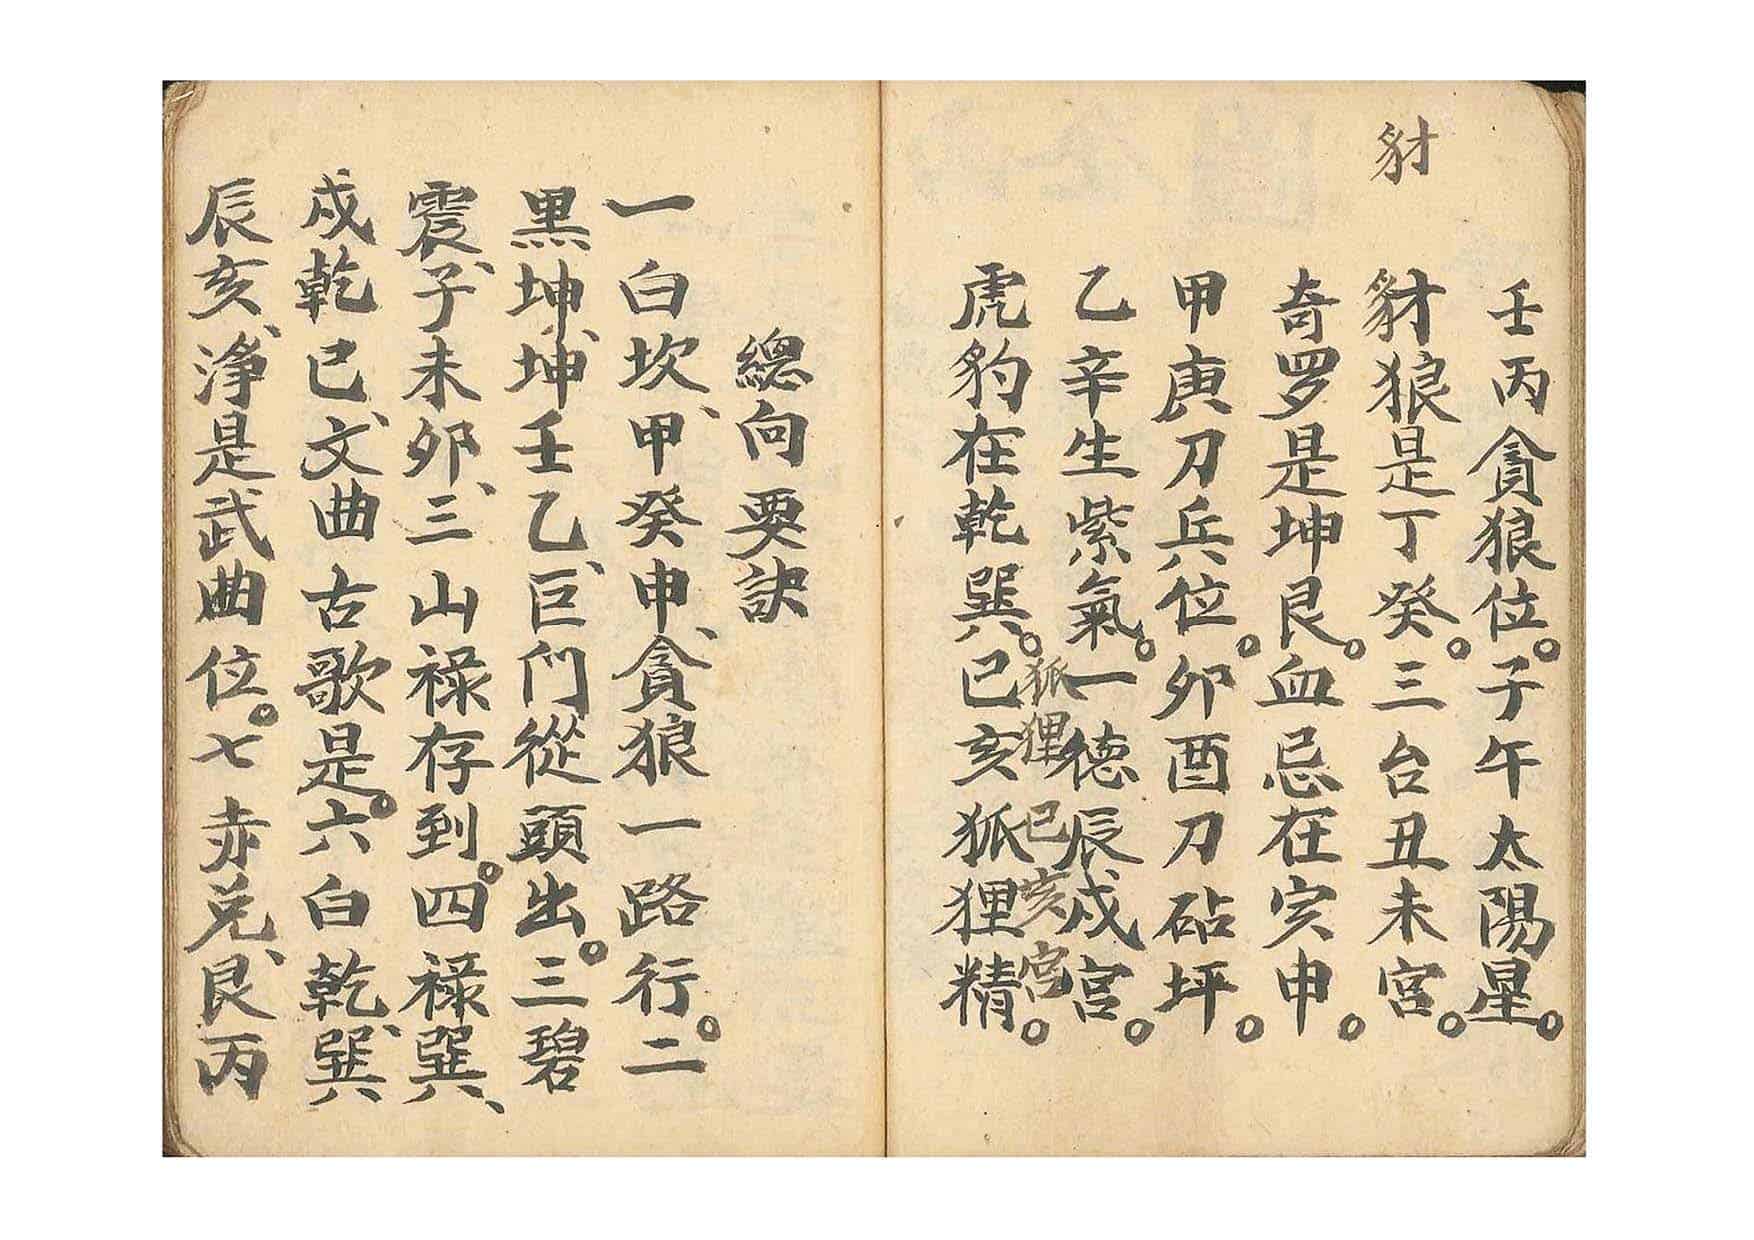 豺
壬丙貪狼位。子午太陽星。
豺狼是丁癸。三台丑未宮。
奇罗是坤艮。血忌在寅申。
甲庚刀兵位。卯酉刀砧坪。
乙辛生紫氣。一德辰戌宮。
狐狸巳亥宮
虎豹在乾巽。巳亥狐狸精。
總向要訣
一白坎、甲癸申、貪狼一路行。二
黑坤、坤壬乙、巨門從頭出。三碧
震、子未卯、三山祿存到。四祿巽、
戌乾巳、文曲古歌是。六白乾、巽
辰亥、淨是武曲位。七赤兑、艮丙